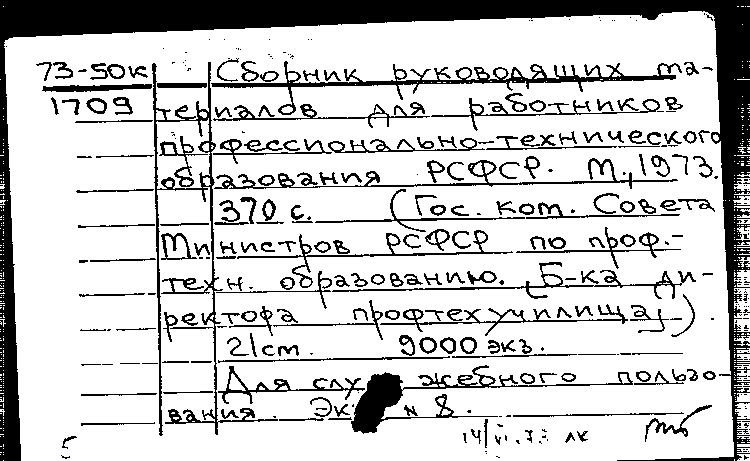 73-50к Сборник руководящих ма-
1709 териалов для работников
профессионально-технического
образования РСФСР. М., 1973.
370 с. (Гос. ком. Совета
Министров РСФСР по проф.-
техн. образованию. (Б-ка ди-
ректора профтехучилища)).
21 cm. 9000 экз.
Для служебного пользо-
вания. Экз N 8.
14/VI.73 лк